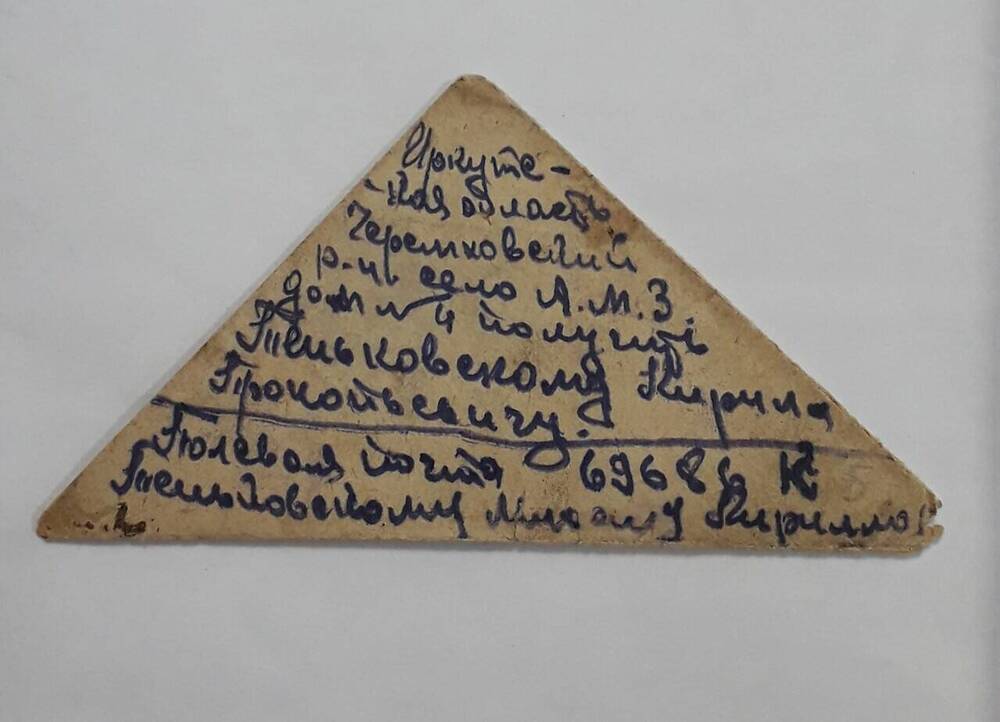 Иркутс-
-кая область
Черемховский
р-н село А.М.З.
дом № 4 получить
Пеньковскому Кирила
Прокопьевичу.
Полевая почта 69686 К
Пеньковскому Кириллов